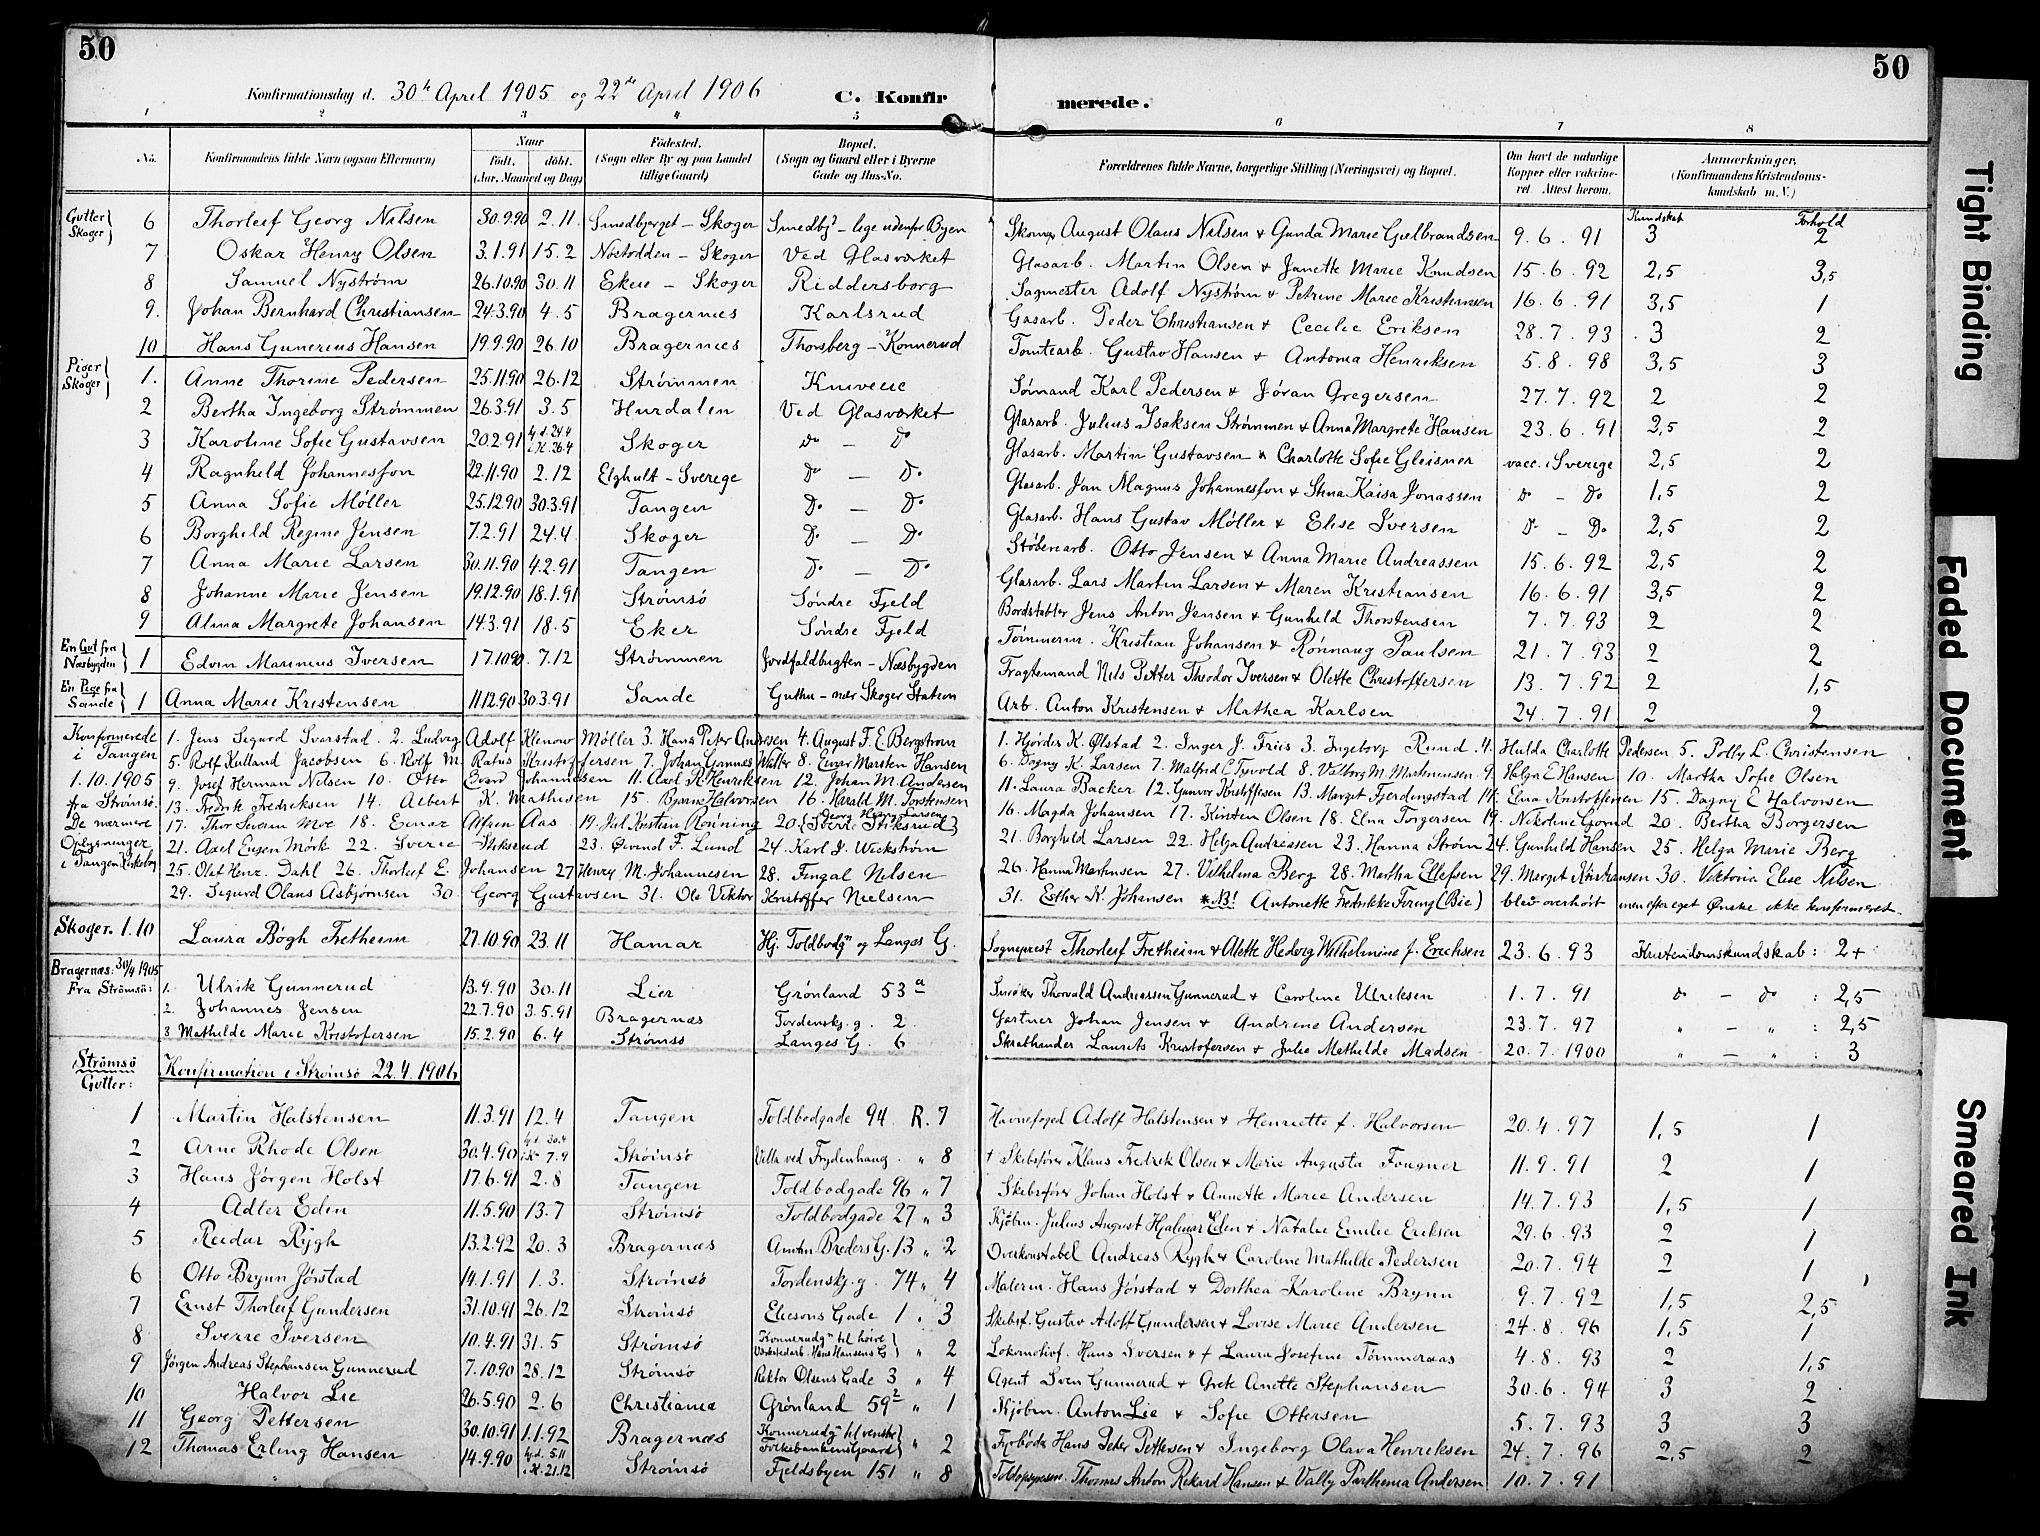 50
50
Konfirmationsdag d. 30te April 1905 og 22de April 1906
C. Konfir
merede.
1 2 3 4 5 6 7 8
No. Konfirmandens fulde Navn (ogsaa Efternavn) Naar født. døbt. (Aar, Maaned og Dag) Fødested. (Sogn eller By og paa Landet tillige Gaard) Bopæl. (Sogn og Gaard eller i Byerne Gade og Hus-No. Forældrenes fulde Navne, borgerlige Stilling (Næringsvei) og Bopæl. Om havt de naturlige Kopper eller vakcineret. Attest herom. Anmærkninger, (Konfirmandens Kristendomskundskab m. V.)
Kundskab Forhold
Gutter Skoger
6 Thorleif Georg Nilsen 30.9.90 2.11 Smedbjerget - Skoger Smedbjt - lige udenfor Byen Skomgr August Olaus Nilsen & Gunda Marie Gulbrandsen 9.6.91 3 2
7 Oskar Henry Olsen 3.1.91 15.2 Nøstodden - Skoger Ved Glasværket Glasarb. Martin Olsen & Janette Marie Knudsen 15.6.92 2,5 3,5
8 Samuel Nyström 26.10.90 30.11 Ekeie - Skoger Riddersborg Sagmester Adolf Nyström & Petrine Marie Kristiansen 16.6.91 3,5 1
9. Johan Bernhard Christiansen 24.3.90 4.5 Bragernæs Karlsrud Gasarb. Peder Christiansen & Cecilie Eriksen 28.7.93 3 2
10 Hans Gunerius Hansen 19.9.90 26.10 Bragernæs Thorsberg - Konnerud Tomtearb. Gustav Hansen & Antonia Henriksen 5.8.98 3,5 3
Piger Skoger
1. Anne Thorine Pedersen 25.11.90 26.12 Strømmen Kniveeie Sømand Karl Pedersen & Jøran Gregersen 27.7.92 2 2
2 Bertha Ingeborg Strømmen 26.3.91 3.5 Hurdalen Ved Glasværket Glasarb. Julius Isaksen Strømmen & Anna Margrete Hansen 23.6.91 2,5 2
3 Karoline Sofie Gustavsen 20.2.91 hj.d. 24.4 i K. 26.4 Skoger Do - Do Glasarb. Martin Gustavsen & Charlotte Sofie Gleisner vacc. i Sverige 2,5 2
4 Ragnhild Johannesson 22.11.90 2.12 Elghult - Sverige Do - Do Glasarb. Jan Magnus Johannesson & Stina Kaisa Jonassen Do - Do 1,5 2
5 Anna Sofie Møller 25.12.90 30.3.91 Tangen Do - Do Glasarb. Hans Gustav Møller & Elise Iversen Do - Do 2,5 2
6 Borghild Regine Jensen 7.2.91 24.4 Skoger Do - Do Støberiarb. Otto Jensen & Anna Marie Andreassen 15.6.92 2,5 2
7 Anna Marie Larsen 30.11.90 4.2.91 Tangen Do - Do Glasarb. Lars Martin Larsen & Maren Kristiansen 16.6.91 3,5 2
8 Johanne Marie Jensen 19.12.90 18.1.91 Strømsø Søndre Fjeld Bordstabler Jens Anton Jensen & Gunhild Thorstensen 7.7.93 2 2
9 Alma Margrete Johansen 14.3.91 18.5 Eker Søndre Fjeld Tømmerm. Kristian Johansen & Rønnaug Paulsen 21.7.93 2 2
En Gut fra Næsbygden
1 Edvin Marinius Iversen 17.10.90 7.12 Strømmen Jordfaldbugten - Næsbygden Fragtemand Nils Petter Theodor Iversen & Olette Christoffersen 13.7.92 2 1,5
En Pige fra Sande
1 Anna Marie Kristensen 11.12.90 30.3.91 Sande Guthu - nær Skoger Station Arb. Anton Kristensen & Mathea Karlsen 24.7.91 2 2
Konfirmerede i Tangen 1.10.1905 fra Strømsø. De nærmere Oplysninger i Tangen Kirkebog
1. Jens Sigurd Sverstad. 2. Ludvig Adolf Klenow Møller 3. Hans Peter Andresen 4. August F. E. Bergstrøm
5. Rolf Kulland Jacobsen 6. Rolf M. Ratus Kristoffersen 7. Johan Gannes Watter 8. Einar Marsten Hansen
9. Josef Herman Nilsen 10. Otto Evard Johannesen 11. Axel R. Henriksen 12. Johan M. Andersen
13. Fredrik Fredriksen 14. Albert K. Mathisen 15. Bjarne Halvorsen 16. Harald M. Torstensen
17. Thor Severin Moe 18. Einar Alfsen Aas 19. Juel Kristian Rønning 20 Georg Henry Larsen (Sverre Stiksrud)
21. Axel Eugen Mørk 22. Sverre Stiksrud 23. Øivind F. Lund 24. Karl J. Wickstrøm
25. Olaf Henr. Dahl 26. Thorleif E. Johansen 27 Henry M. Johannesen 28. Fingal Nilsen
29. Sigurd Olaus Asbjørnsen 30. Georg Gustavsen 31. Ole Viktor Kristoffer Nielsen
1. Hjørdis K. Ølstad 2. Inger J. Friis 3. Ingeborg Rund. 4. Hulda Charlotte Pedersen 5. Polly L. Christensen
6. Dagny K. Larsen 7. Malfred C Tyvold 8. Valborg M. Martinussen 9. Helga E Hansen 10. Martha Sofie Olsen
11. Laura Backer 12. Gunvor Kristoffesen 13. Margit Fjerdingstad 14. Elna Kristoffersen 15. Dagny E Halvorsen
16. Magda Johansen 17. Kirsten Olsen 18. Elna Torgersen 19. Nikoline Gorud 20. Bertha Borgersen
21. Borghild Larsen 22. Helga Andreassen 23. Hanna Strøm 24. Gunhild Hansen 25. Helga Marie Berg
26. Hanna Martinsen 27. Vilhelmina Berg 28. Martha Ellefsen 29. Margit Kristiansen 30. Viktoria Elise Nilsen
31. Esther N. Johansen *NB! Antonette Fredrikke Firing (Bie) blev overhørt men efter eget Ønske ikke konfirmeret.
Skoger. 1.10 Laura Bøgh Fretheim 27.10.90 23.11 Hamar Hj. Toldbodgn og Langes G. Sogneprest Thorleif Fretheim & Alette Hedvig Wilhelmine f. Erichsen 23.6.93 Kristendomskundskab: 2+
Bragernæs: 30/4 1905 Fra Strømsø:
1. Ulrik Gunnerud 13.9.90 30.11 Lier Grønland 53a Snedker Thorvald Andreassen Gunnerud & Caroline Ulriksen 1.7.91 do - do : 2,5
2. Johannes Jensen 22.7.90 3.5.91 Bragernæs Tordenskj. g. 2 Gartner Johan Jensen & Andrine Andersen 23.7.97 " - " : 2,5
3 Mathilde Marie Kristofersen 15.2.90 6.4 Strømsø Langes G. 6 Skræthander Laurits Kristofersen & Julie Mathilde Madsen 20.7.1900 " - " : 3
Strømsø Gutter: Konfirmation i Strømsø 22.4.1906
1 Martin Halstensen 11.3.91 12.4 Tangen Toldbodgade 94 R. 7 Havnefoged Adolf Halstensen & Henriette f. Halvorsen 20.4.97 1,5 1
2 Arne Rhode Olsen 30.4.90 hj.d. 30.4 i K 7.9 Strømsø Villa ved Frydenhaug. " 8 † Skibsfører Klaus Fredrik Olsen & Marie Augusta Fougner 11.9.91 2 1
3 Hans Jørgen Holst 17.6.91 2.8 Tangen Toldbodgade 96 " 7 Skibsfører Johan Holst & Annette Marie Andersen 14.7.93 1,5 1
4 Adler Eden 11.5.90 13.7 Strømsø Toldbodgade 27 " 3 Kjøbm. Julius August Hjalmar Eden & Natalie Emilie Eriksen 29.6.93 2 1
5 Reidar Rygh 13.2.92 20.3 Bragernæs Amtm Breders G. 13 " 2 Overkonstabel Andreas Rygh & Caroline Mathilde Pedersen 20.7.94 2 1
6 Otto Brynn Jørstad 14.1.91 1.3. Strømsø Tordenskj. g. 74 " 4 Malerm. Hans Jørstad & Dorthea Karoline Brynn 9.7.92 1,5 2,5
7 Ernst Thorleif Gundersen 31.10.91 26.12 Strømsø Eliesons Gade 1 . 3 Skibsf. Gustav Adolf Gundersen & Lovise Marie Andersen 24.8.96 1,5 1
8 Sverre Iversen 10.4.91 31.5 Strømsø Konnerudgn til høire Værkstedarb. Hans Hansens G " 2 Lokomotivf. Hans Iversen & † Laura Josefine Tømmeraas 4.8.93 2 1,5
9 Jørgen Andreas Stephansen Gunnerud 7.10.90 28.12 Strømsø Rektor Olsens Gade 3 " 4 Agent Sven Gunnerud & Grete Anette Stephansen 30.6.94 3 2
10 Halvor Lie 26.5.90 2.6 Christiania Grønland 59² " 1 Kjøbm. Anton Lie & Sofie Ottersen 5.7.93 3 3
11 Georg Pettersen 30.10.91 1.1.92 Bragernæs Konnerudgn til venstre Folkebankens Gaard " 2 Fyrbøder Hans Peter Pettersen & Ingeborg Olava Henriksen 24.7.96 2,5 2
12 Thomas Erling Hansen 14.9.90 hj.d. 5.11 i K. 21.12 Strømsø Fjeldsbyen 151 " 8 Toldopsynsm. Thomas Anton Rikard Hansen & Vally Parthenia Andersen 10.7.91
Tight Binding
Faded Document
Smeared Ink